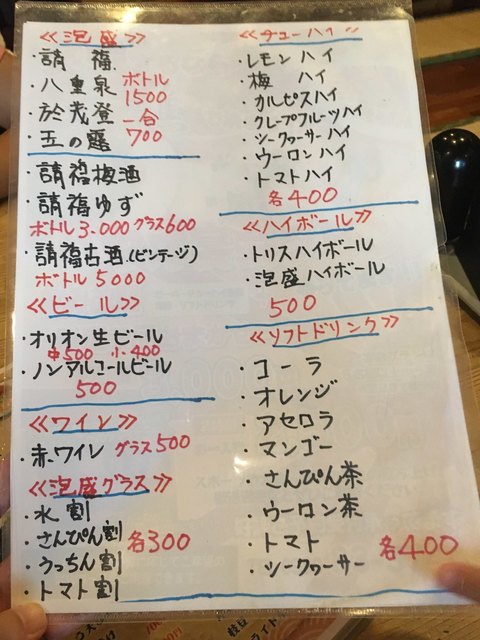 ≪泡盛≫
・請福
・八重泉
・於茂登
・玉の露
ボトル
1500
一合
700
・請福梅酒
・請福ゆず
ボトル3.000 グラス600
・請福古酒(ビンテージ)
ボトル5000
≪ビール≫
・オリオン生ビール
中500 小400
・ノンアルコールビール
500
≪ワイン≫
・赤ワイン グラス500
≪泡盛グラス≫
・水割
・さんぴん割
・うっちん割
・トマト割
各300
≪チューハイ≫
・レモンハイ
・梅ハイ
・カルピスハイ
・グレープフルーツハイ
・シークワーサーハイ
・ウーロンハイ
・トマトハイ
各400
≪ハイボール≫
・トリスハイボール
・泡盛ハイボール
500
≪ソフトドリンク≫
・コーラ
・オレンジ
・アセロラ
・マンゴー
・さんぴん茶
・ウーロン茶
・トマト
・シークヮーサー
各400
枝豆